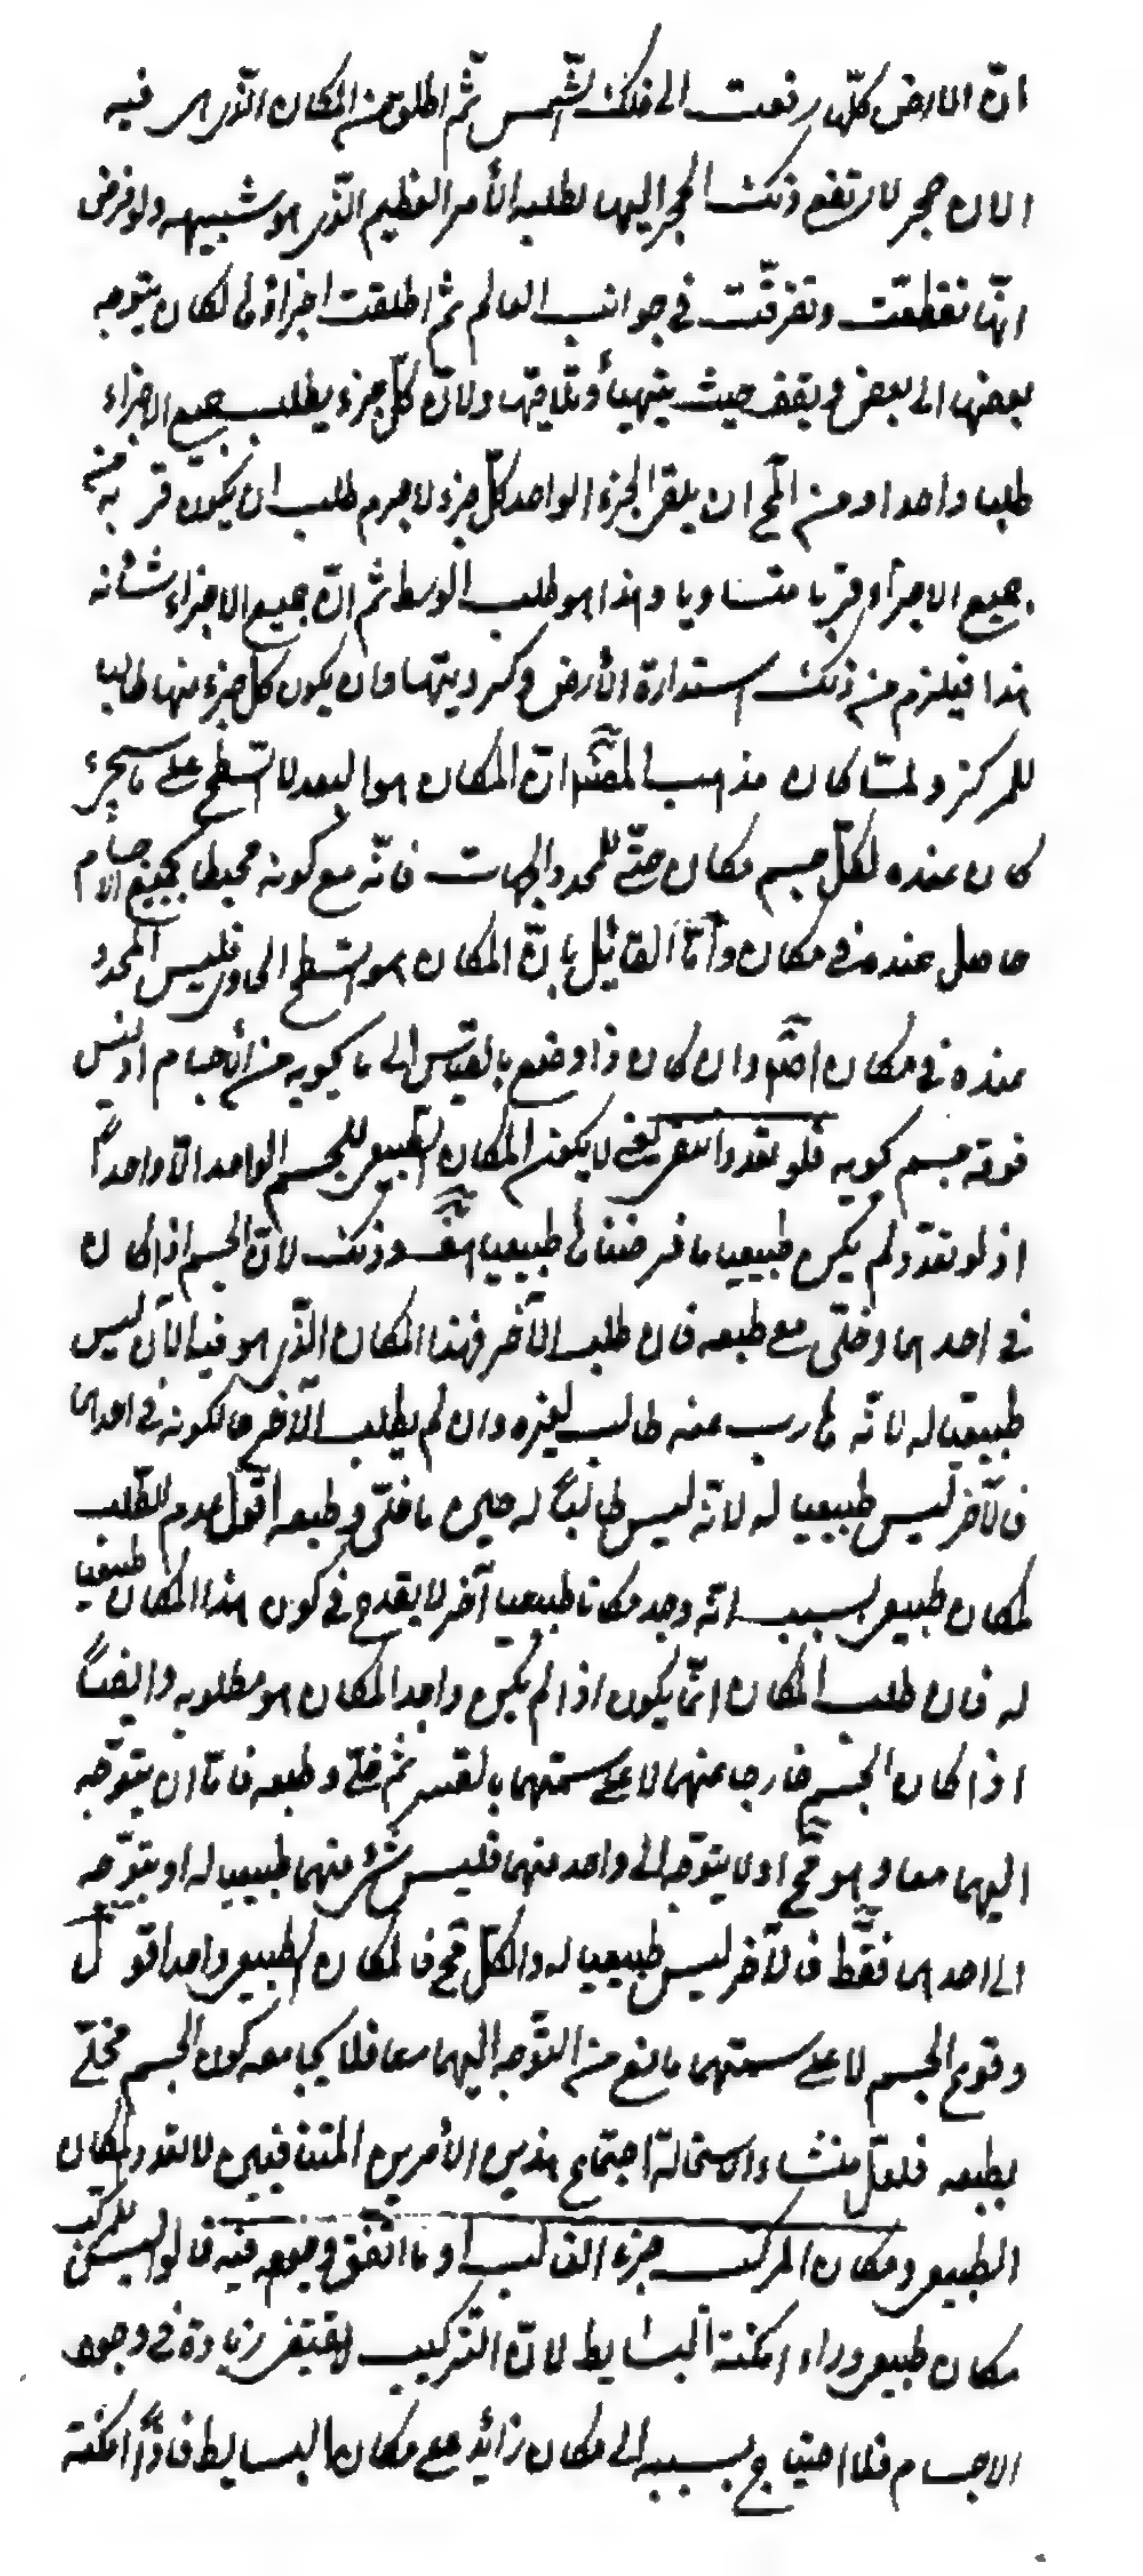 انّ الارض كلّها رفعت الى فلك الشّمس ثمّ اطلق من المكان الّذى هى فيه
الان حجر لارتفع ذلك الحجر اليها لطلبه الأمر العظيم الّذى هو شبيهه ولو فرض
انّها تقطّعت وتفرّقت فى جوانب العالم ثم اطلقت اجزاؤها لكان يتوجه
بعضها الى بعض ويقف حيث يتهيأ تلاقيها ولانّ كلّ جزء يطلب جميع الاجزاء
طلبا واحدا ومن المح ان يلقى الجزء الواحد كلّ جزء لاجرم طلب ان يكون قربه من
جميع الاجزاء قربا متساويا وهذا هو طلب الوسط ثمّ انّ جميع الاجزاء شانه
هذا فيلزم من ذلك استدارة الأرض وكرويتها وان يكون كل جزء منها طالبا
للمركز ولمّا كان مذهب المصّ انّ المكان هو البعد لا السّطح على ما سيجىء
كان عنده لكلّ جسم مكان حتّى للمحدد الجهات فانّه مع كونه محيطا بجميع الاجسام
حاصل عنده فى مكان وأمّا القائل بانّ المكان هو السّطح الحاوى فليس المحدد
عنده فى مكان اصّلا وان كان ذا وضع بالقياس الى ما يحويه من الأجسام اذ ليس
فوقه جسم يحويه فلو تعدد انتفى يعنى لا يكون المكان الطّبيعى للجسم الواحد الّا واحداً
اذ لو تعدّد لم يكن طبيعيا ما فرضناه طبيعيا هف وذلك لانّ الجسم اذا كان
فى احدهما وخلّى مع طبعه فان طلب الآخر فهذا المكان الّذى هو فيه الآن ليس
طبيعيّا له لانّه هارب عنه طالب لغيره وان لم يطلب الآخر حالكونه فى احدهما
فالآخر ليس طبيعيا له لانّه ليس طالباً له حين ما خلّى وطبعه اقول عدم الطّلب
لمكان طبيعى بسبب انّه وجد مكانا طبيعيا آخر لا يقدح فى كون هذا المكان طبيعيا
له فان طلب المكان انّما يكون اذا لم يكن واجدا لمكان هو مطلوبه وايضاً
اذا كان الجسم خارجا عنهما لا على سمتهما بالقسر ثم خلّى وطبعه فامّا ان يتوّجه
اليهما معا وهو مح او لا يتوجّه الى واحد منهما فليس شىء منهما طبيعيا له او يتوّجه
الى احدهما فقط فالآخر ليس طبيعيا له والكلّ مح فالمكان الطبيعى واحد اقول
وقوع الجسم لا على سمتهما مانع من التّوجه اليهما معا فلا يجامعه كون الجسم مخلّى
بطبعه فلعلّ منشاء الاستحالة اجتماع هذين الأمرين المتنافيين لا تعدد المكان
الطبيعى ومكان المركب جزء الغالب او ما اتّفق وجوده فيه قالوا ليس للمركب
مكان طبيعى وراء امكنة البسايط لانّ التّركيب لا يقتضى زيادة فى وجود
الاجسام فلا احتياج بسببه الى مكان زائد على مكان البسايط فاذاً امكنة